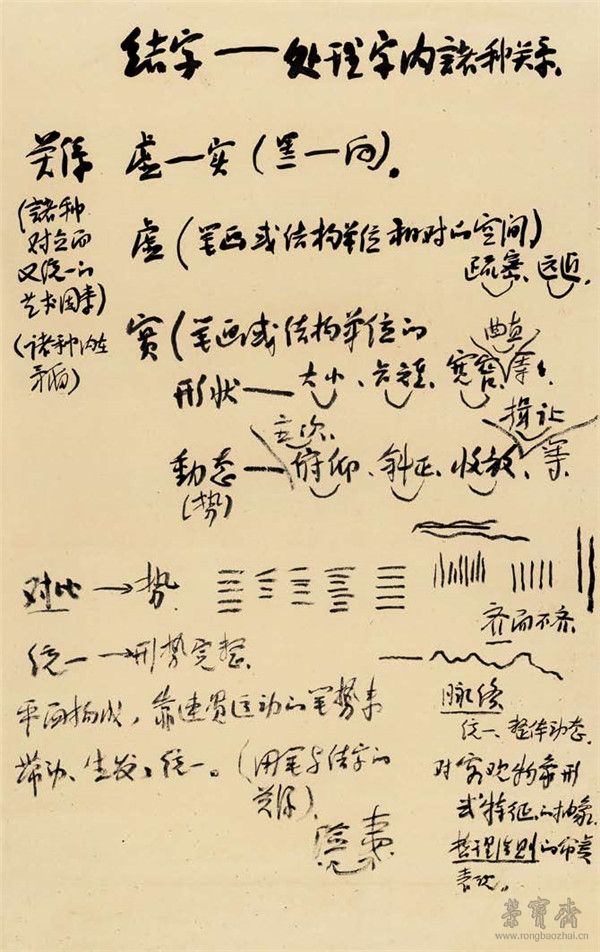 结字——处理字内諸种关系、
关係 虚—实(黑—白)。
(諸种
对立而
又统一的
艺术因素)
(诸种内在
矛盾)
虚(笔画或结构单位相对的空间)
疏密、远近、
实(笔画或结构单位的
曲直
形状——大小、长短、宽窄、等、
揖让
主次、
動态——俯仰、斜正、收放、等、
(势)
对比→势、
齐而不齐、
统一→形势完整、
平面构成，靠连贯运动的笔势来
带动、生发、统一。(用笔与结字的
关係)
脉络
统一、整体动态、
对客观物象形
式特征的抽象、
哲理法则的
荣寶齋
www.rongbaozhai.cn